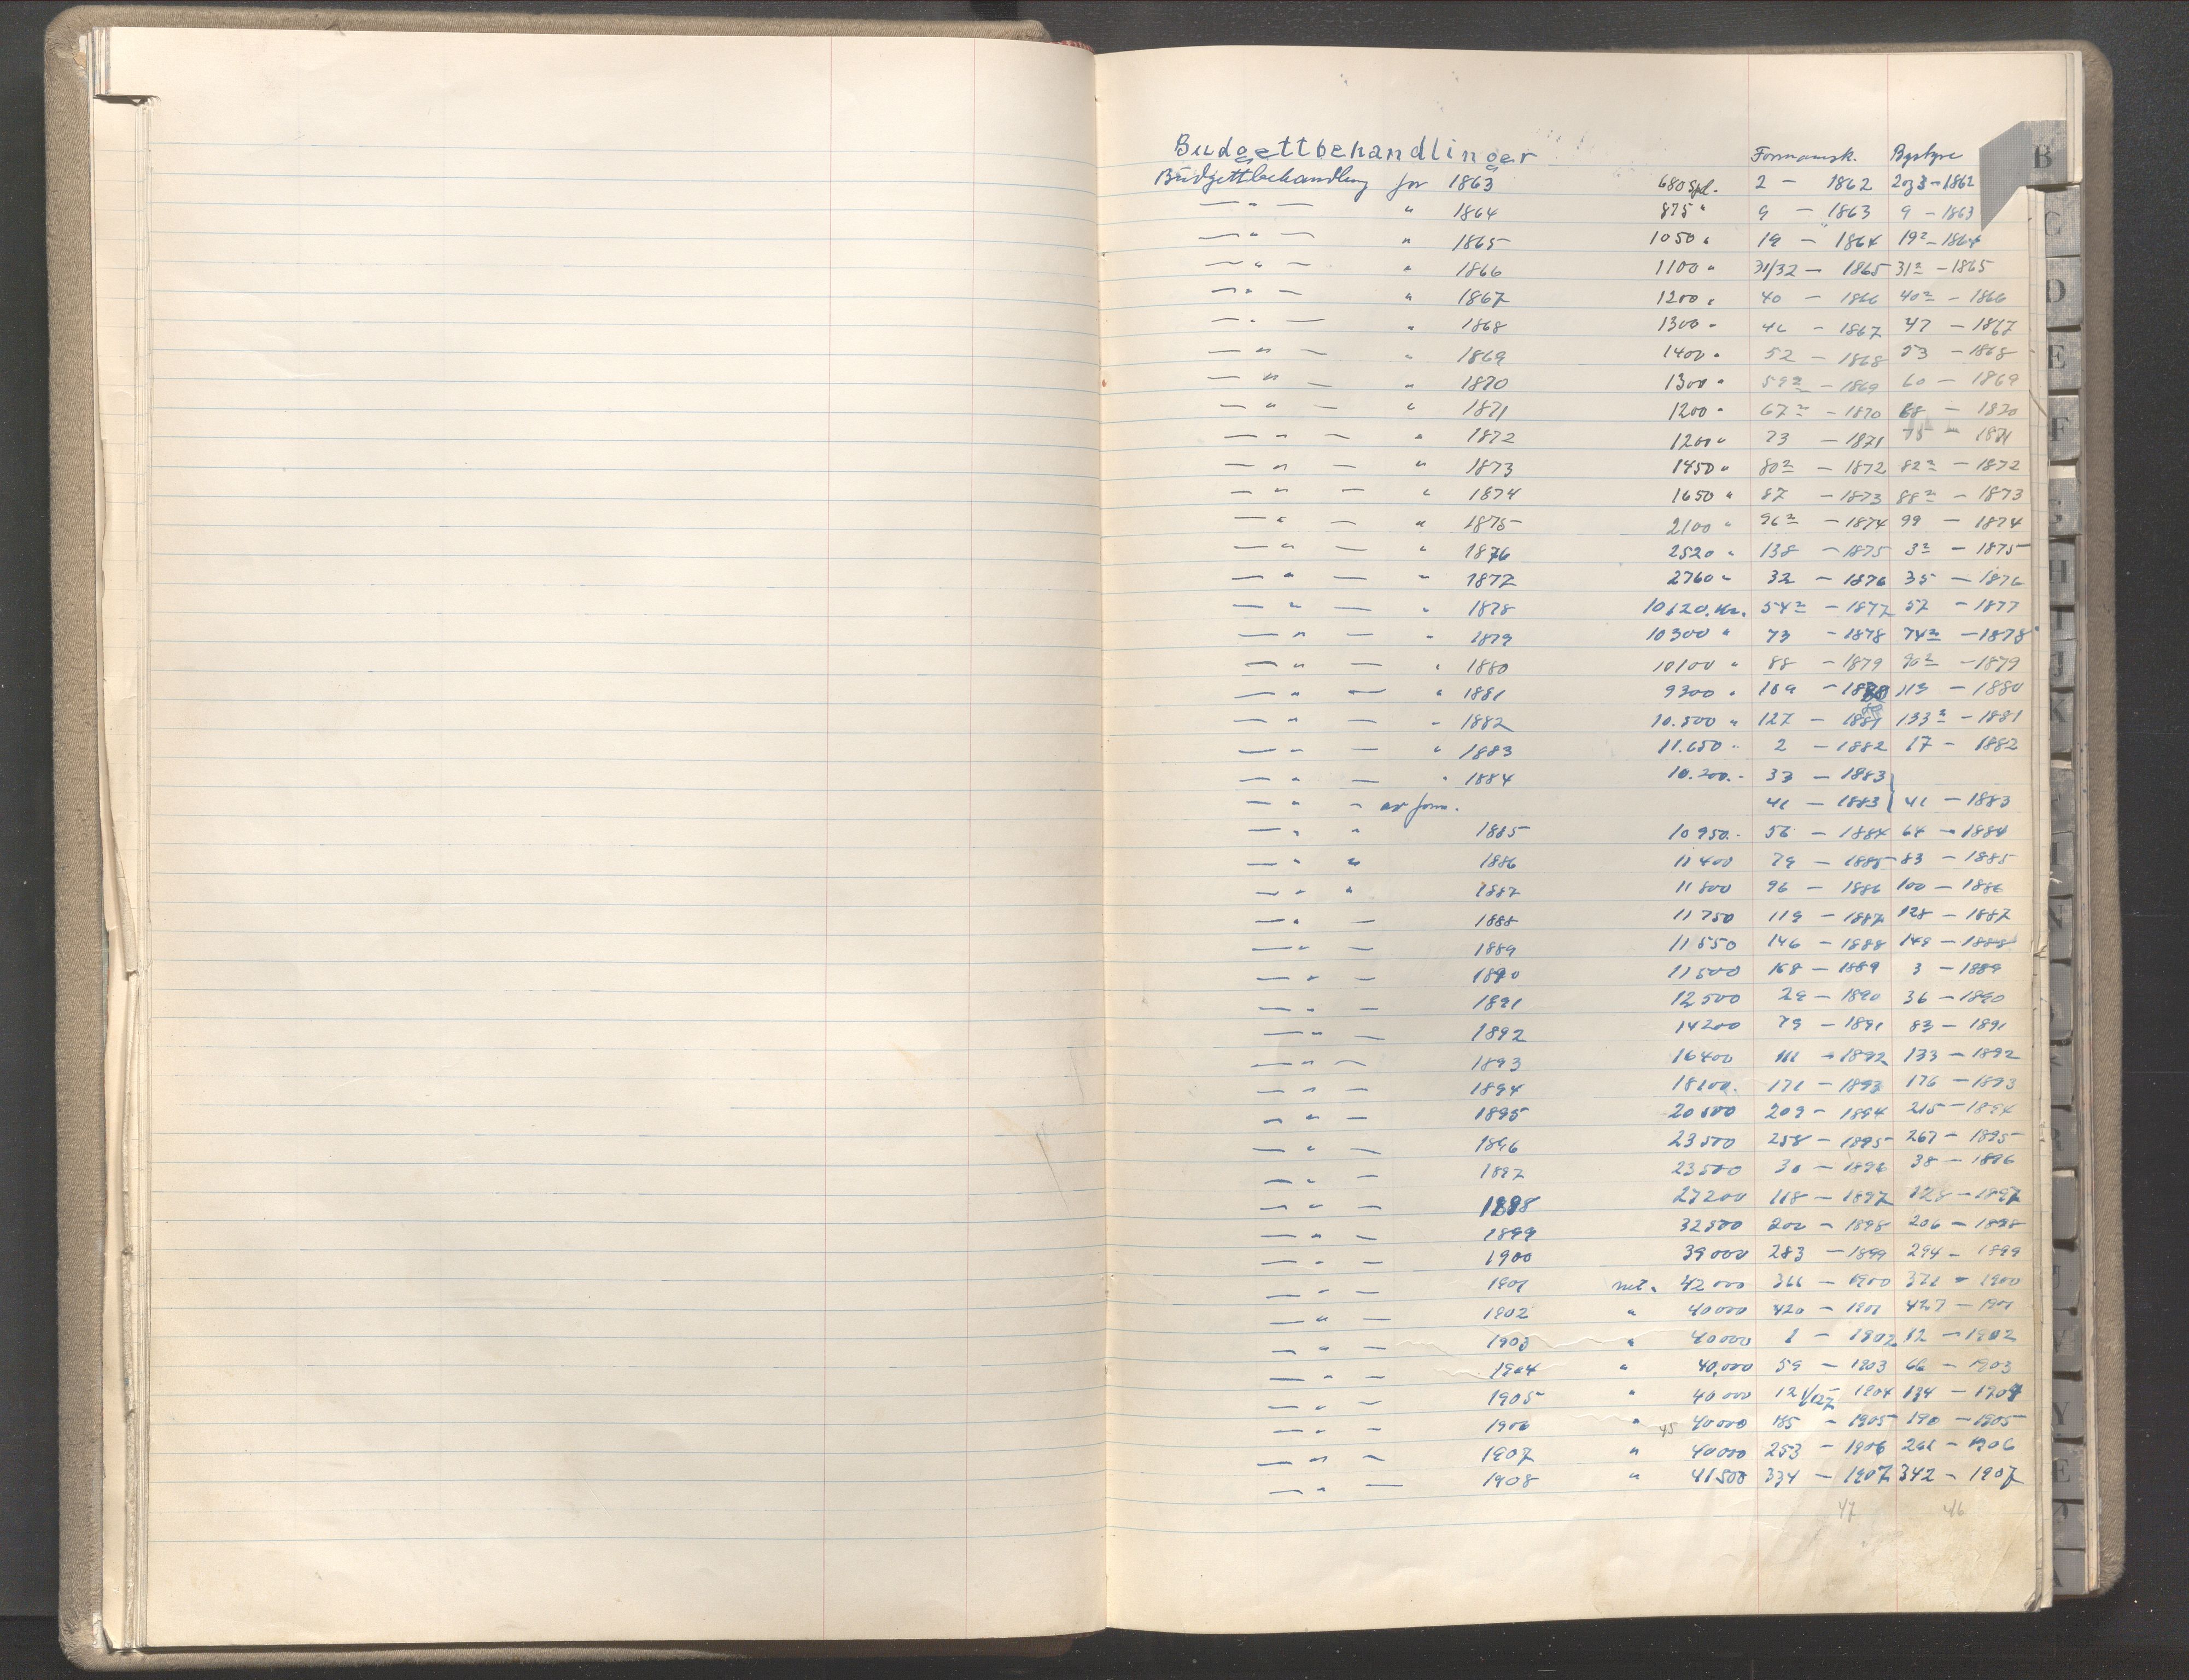 Budgettbehandlinger Formannsk. Bystyre B
Budgettbehandling for 1863 680 Spd. 2 - 1862 2og3 - 1862
— " — " 1864 875 " 9 - 1863 9 - 1863 C
— " — " 1865 1050 " 19 - 1864 19² - 1864
— " — " 1866 1100 " 31/32 - 1865 31² - 1865 D
— " — " 1867 1200 " 40 - 1866 40² - 1866
— " — " 1868 1300 " 46 - 1867 47 - 1867
— " — " 1869 1400 " 52 - 1868 53 - 1868 E
— " — " 1870 1300 " 59² - 1869 60 - 1869
— " — " 1871 1200 " 67² - 1870 68 - 1870
— " — " 1872 1200 " 73 - 1871 75 - 1871 F
— " — " 1873 1450 " 80² - 1872 82² - 1872
— " — " 1874 1650 " 87 - 1873 88² - 1873
— " — " 1875 2100 " 96² - 1874 99 - 1874
— " — " 1876 2520 " 138 - 1875 3² - 1875
— " — " 1877 2760 " 32 - 1876 35 - 1876 H
— " — " 1878 10620. Kr. 54² - 1877 57 - 1877 I
— " — " 1879 10300 " 73 - 1878 74² - 1878
— " — " 1880 10100 " 88 - 1879 90² - 1879 J
— " — " 1881 9300 " 109 - 1880 113 - 1880 K
— " — " 1882 10.500 " 127 - 1881 133² - 1881
— " — " 1883 11.650 " 2 - 1882 17 - 1882
— " — " 1884 10.200.- 33 - 1883
— " — av form. 41 - 1883 41 - 1883
— " " 1885 10950.- 56 - 1884 64 - 1884
— " " 1886 11400 79 - 1885 83 - 1885
— " " 1887 11800 96 - 1886 100 - 1886
— " — 1888 11750 119 - 1887 128 - 1887 N
— " — 1889 11550 146 - 1888 148 - 1888
— " — 1890 11500 168 - 1889 3 - 1889
— " — 1891 12500 29 - 1890 36 - 1890
— " — 1892 14200 79 - 1891 83 - 1891
— " — 1893 16400 111 - 1892 133 - 1892
— " — 1894 18100. 171 - 1893 176 - 1893
— " — 1895 20500 209 - 1894 215 - 1894
— " — 1896 23500 258 - 1895 267 - 1895
— " — 1897 23500 30 - 1896 38 - 1896
— " — 1898 27200 118 - 1897 128 - 1897
— " — 1899 32500 200 - 1898 206 - 1898
— " — 1900 39000 283 - 1899 294 - 1899
— " — 1901 net. 42000 366 - 1900 371 - 1900
— " — 1902 " 40000 420 - 1901 427 - 1901
— " — 1903 " 40000 1 - 1902 12 - 1902
— " — 1904 " 40,000 59 - 1903 66 - 1903
— " — 1905 " 40000 121/127 - 1904 134 - 1904 Y
— " — 1906 " 45 40000 185 - 1905 190 - 1905
— " — 1907 " 40000 253 - 1906 261 - 1906
— " — 1908 " 41500 334 - 1907 342 - 1907
47 46